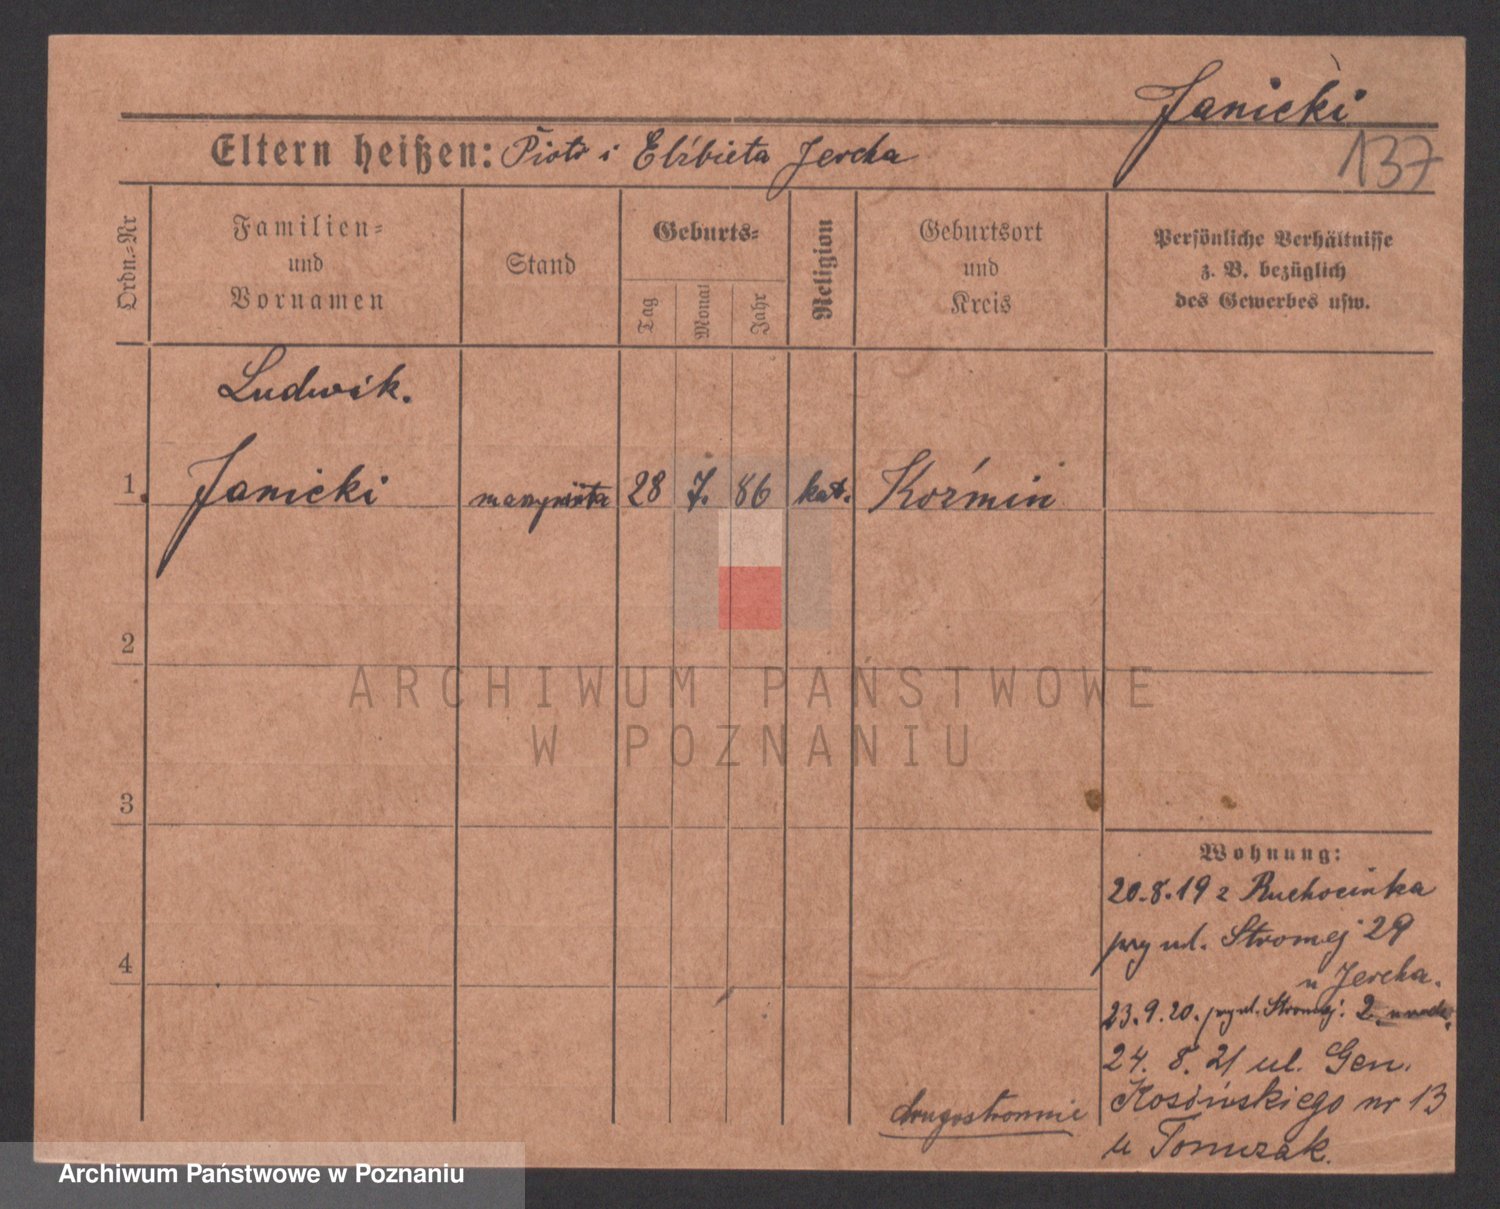 Janicki
137
Eltern heißen: Piotr i Elżbieta Jercha
Ordn.-Nr
Familien-
und
Vornamen
Stand
Geburts-
Tag
Monat
Jahr
Religion
Geburtsort
und
Kreis
Persönliche Verhältnisse
z. B. bezüglich
des Gewerbes usw.
Ludwik.
1. Janicki maszynista 28 7. 86 kat. Koźmin
2
ARCHIWUM PAŃSTWOWE
W POZNANIU
3
Wohnung:
20.8.19 z Ruchocinka
przy ul. Stromej 29
u Jercha.
23.9.20. przy ul. Stromej. 2.
4
24. 8. 21 ul. Gen.
Kosińskiego nr 13
u Tomczak.
drugostronnie
Archiwum Państwowe w Poznaniu